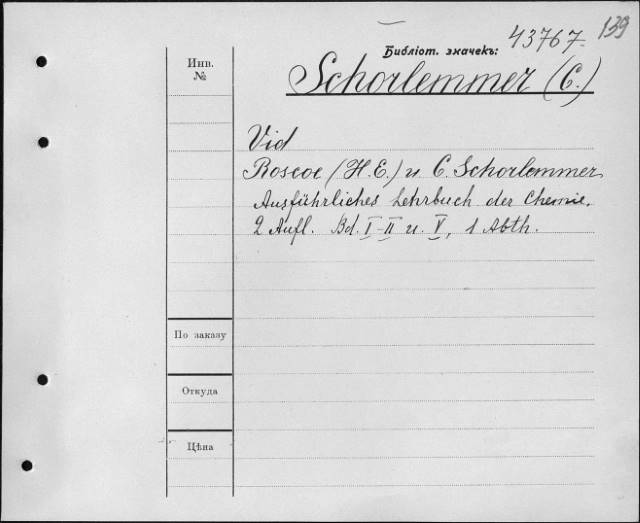 139
Библіот. значекъ: 43767.
Инв.
№
Schorlemmer (C.)
Vid
Roscoe (H.E.) u. C. Schorlemmer
Ausführliches Lehrbuch der Chemie.
2 Aufl. Bd. I-II u. V, 1 Abth.
По заказу
Откуда
Цѣна